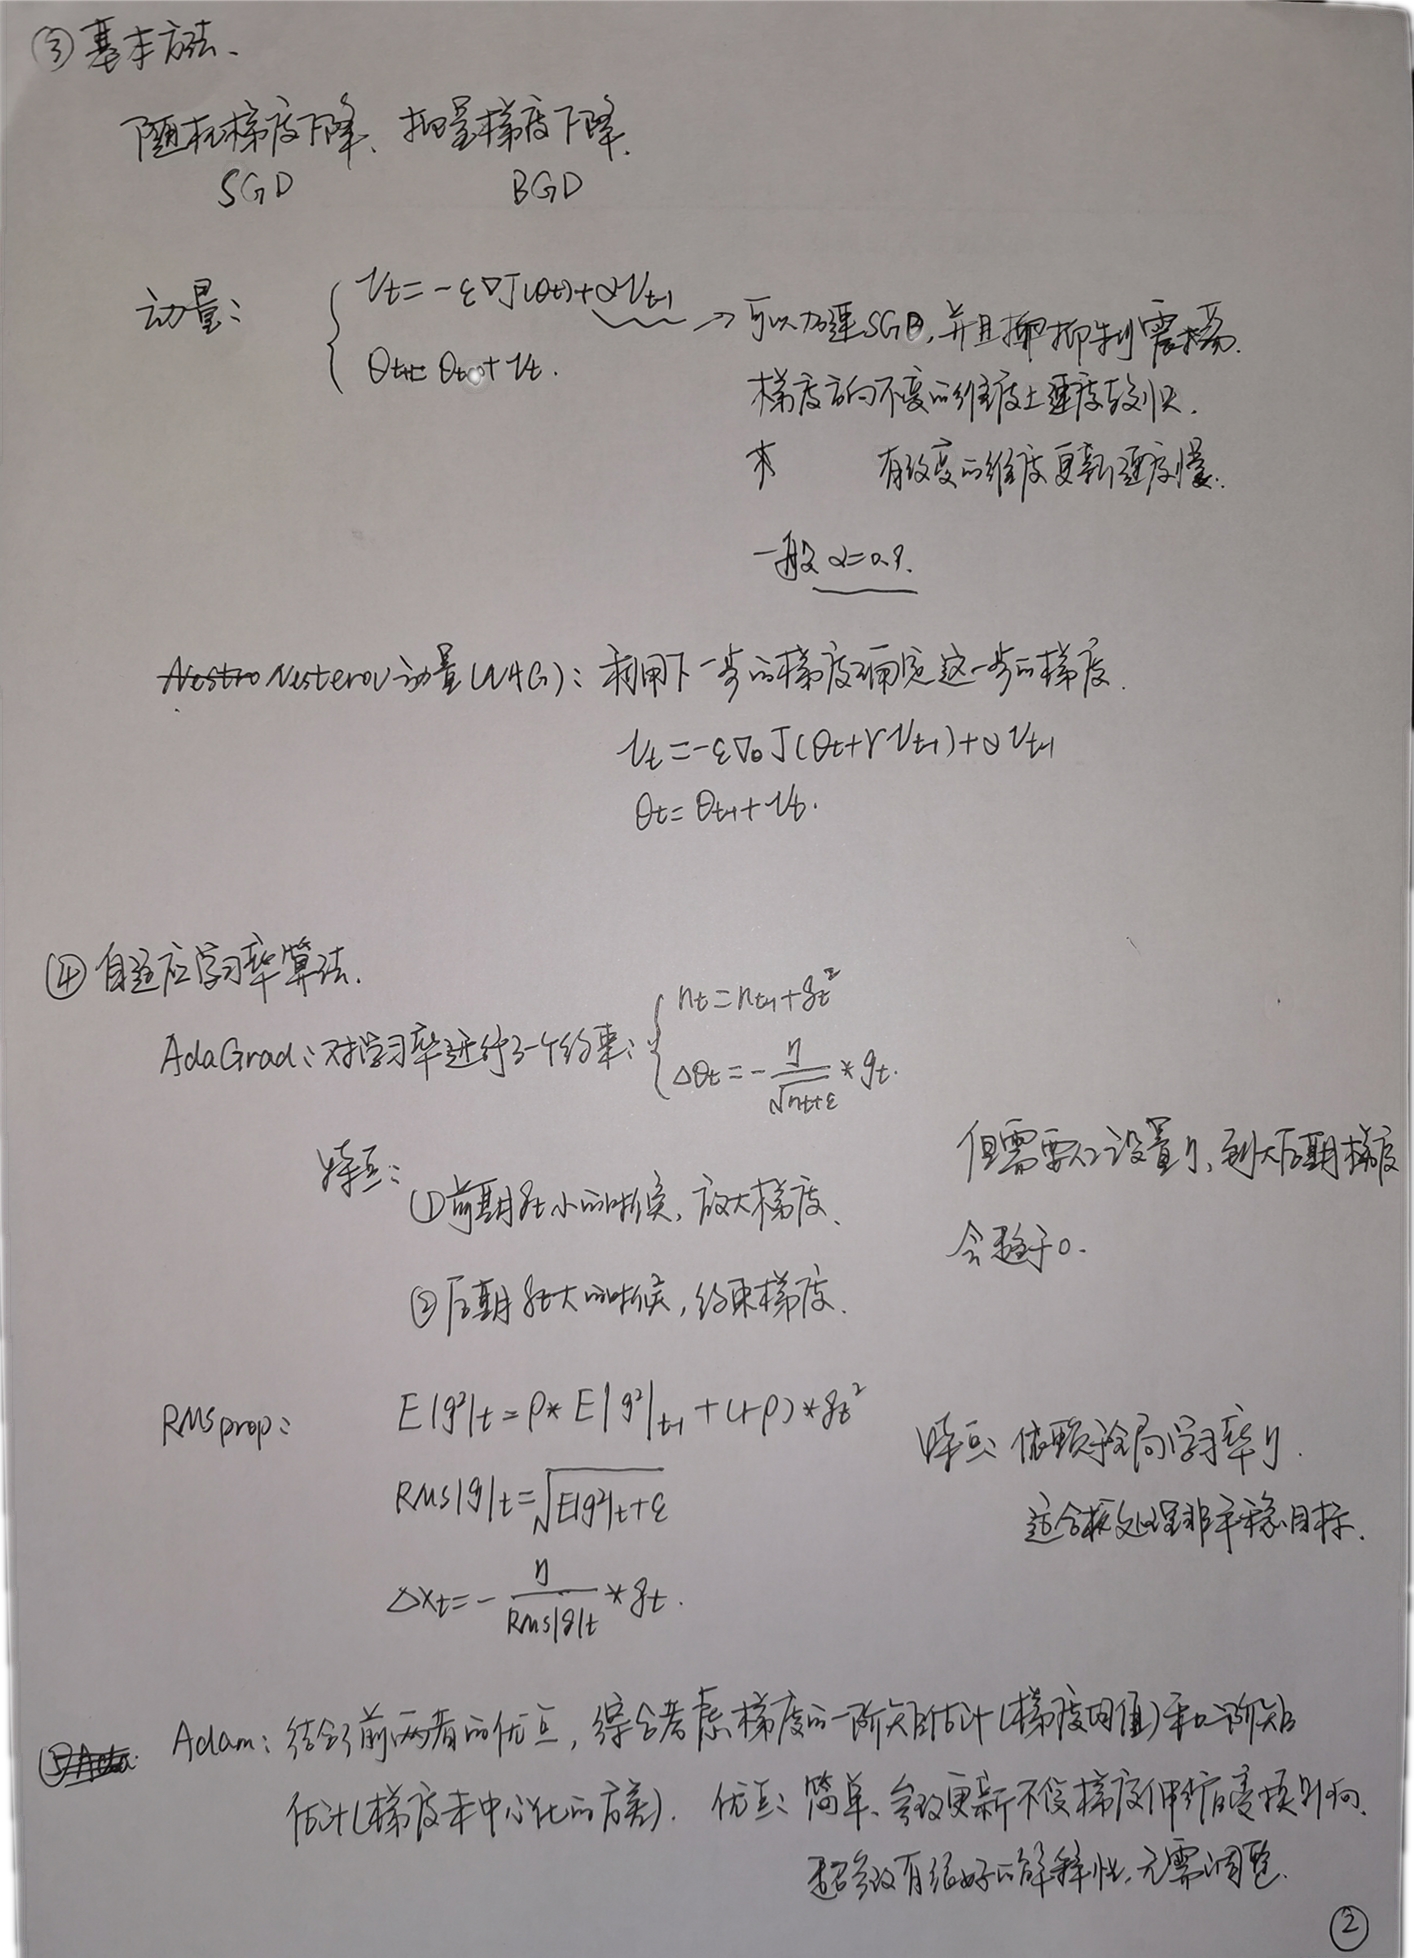 ③基本方法、
随机梯度下降、批量梯度下降.
SGD BGD
动量: { Vt=-ε▽J(θt)+αVt-1 → 可以加速SGD,并且抑制震荡.
θt=θt-1+Vt.
梯度方向不变的维度上速度较快.
有改变的维度更新速度慢.
一般α=0.9.
Nesterov动量(NAG):利用下一步的梯度确定这一步的梯度.
Vt=-ε▽θJ(θt+γVt-1)+αVt-1
θt=θt-1+Vt.
④自适应学习率算法.
AdaGrad:对学习率进行了一个约束: { nt=nt-1+gt²
Δθt=-η/√(nt+ε)*gt.
特点:①前期gt小的时候,放大梯度、
②后期gt大的时候,约束梯度.
但需要人工设置η,到了后期梯度
会趋于0.
RMSprop: E|g²|t=ρ*E|g²|t-1+(1-ρ)*gt²
RMS|g|t=√(E|g²|t+ε)
Δxt=-η/RMS|g|t*gt.
特点:依赖于全局学习率η.
适合处理非平稳目标.
Adam:结合了前两者的优点,综合考虑梯度的一阶矩估计(梯度均值)和二阶矩
估计(梯度未中心化的方差). 优点:简单、参数更新不受梯度伸缩变换影响.
超参数有很好的解释性,无需调整.
②